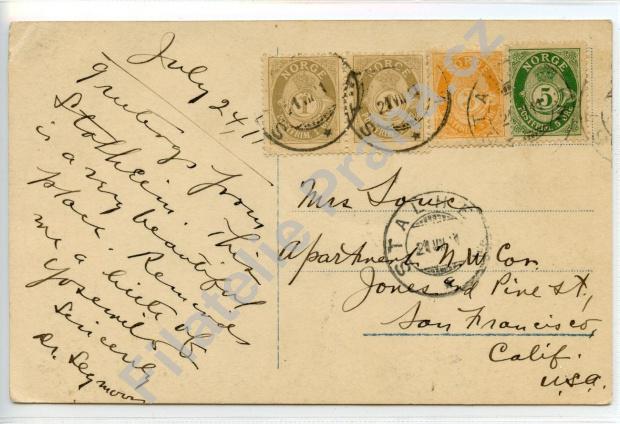 July 24, 11
greetings from
Stalheim. This
is a very beautiful
place. Reminds
me a little of
Yosemite
Sincerely
Dr. Seymour
NORGE
NORGE
NORGE
NORGE
5
POSTFRIM
POSTFRIM
STALHEIM
24 VII 11
Mrs
Apartment N.W Cor.
Jones and Pine St,
San Francisco,
Calif.
U.S.A.
Filatelie Praha.cz